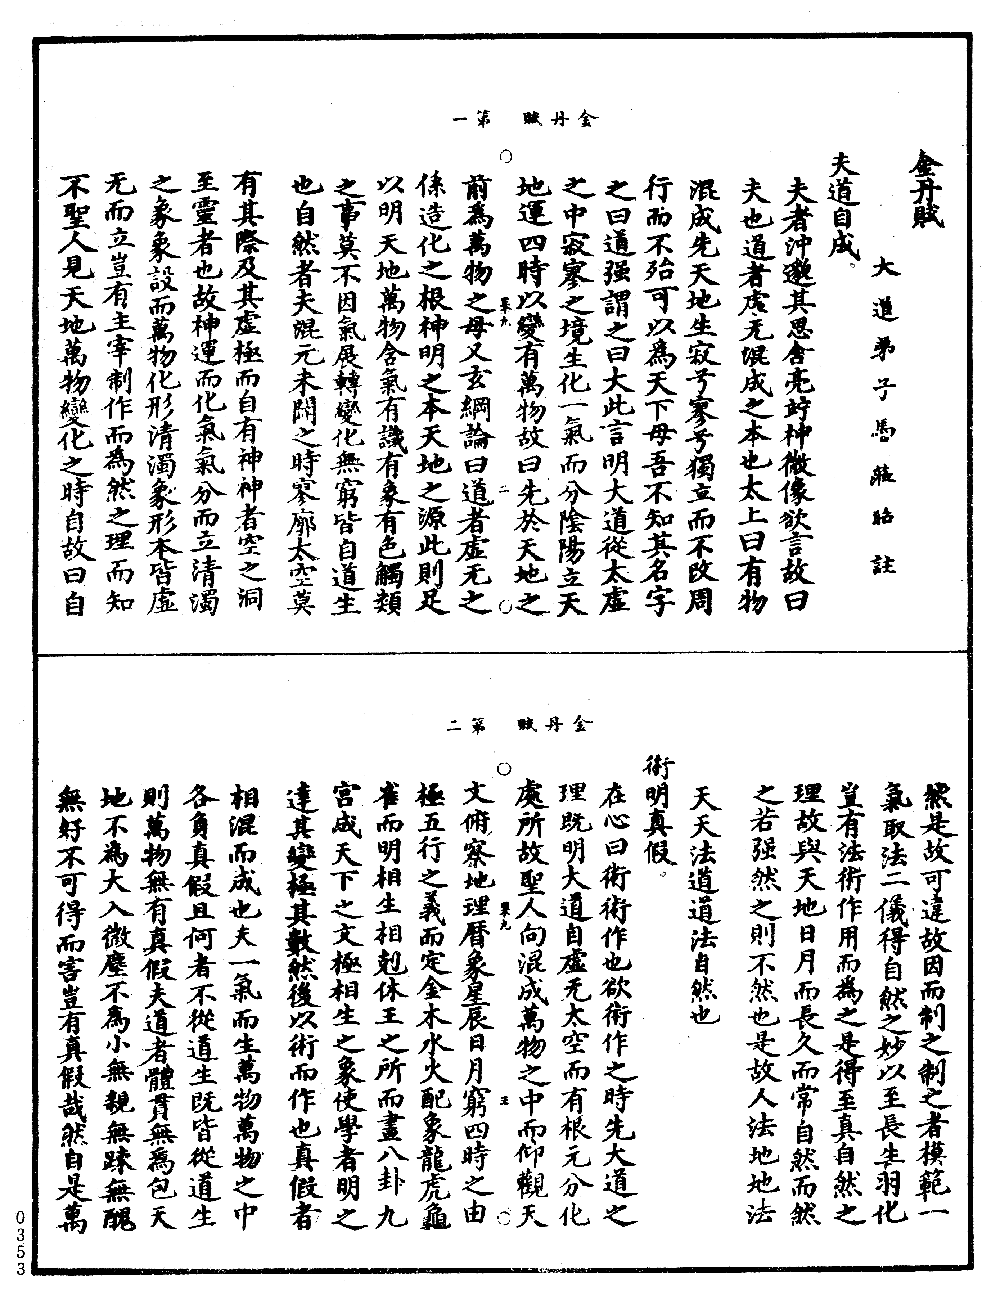 金丹賦　第一
金丹賦
大道弟子馬蒞昭註
夫道自成。
夫者沖邈其思含亮竚神微像欲言故曰
夫也道者虛无混成之本也太上曰有物
混成先天地生寂兮寥兮獨立而不改周
行而不殆可以為天下母吾不知其名字
之曰道强謂之曰大此言明大道從太虛
之中寂寥之境生化一氣而分陰陽立天
地運四時以變有萬物故曰先於天地之
果九　二
前為萬物之母又玄綱論曰道者虛无之
係造化之根神明之本天地之源此則足
以明天地萬物含氣有識有象有色觸類
之事莫不因氣展轉變化無窮皆自道生
也自然者夫混元未闢之時寥廓太空莫
有其際及其虛極而自有神神者空之洞
至靈者也故神運而化氣氣分而立清濁
之象象設而萬物化形清濁象形本皆虛
无而立豈有主宰制作而為然之理而知
不聖人見天地萬物變化之時自故曰自
金丹賦　第二
然是故可違故因而制之制之者模範一
氣取法二儀得自然之妙以至長生羽化
豈有法術作用而為之是得至真自然之
理故與天地日月而長久而常自然而然
之若强然之則不然也是故人法地地法
天天法道道法自然也
術明真假。
在心曰術術作也欲術作之時先大道之
理既明大道自虛无太空而有根元分化
處所故聖人向混成萬物之中而仰觀天
果九　三
文俯察地理曆象星辰日月窮四時之由
極五行之義而定金木水火配象龍虎龜
雀而明相生相剋休王之所而畫八卦九
宮成天下之文極相生之象使學者明之
達其變極其數然後以術而作也真假者
相混而成也夫一氣而生萬物萬物之中
各負真假且何者不從道生既皆從道生
則萬物無有真假夫道者體貫無為包天
地不為大入微塵不為小無親無疎無醜
無好不可得而害豈有真假哉然自是萬
0353